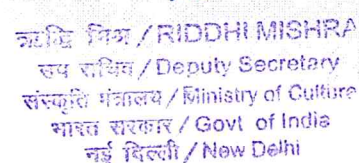 ऋद्धि मिश्र / RIDDHI MISHRA
उप सचिव / Deputy Secretary
संस्कृति मंत्रालय / Ministry of Culture
भारत सरकार / Govt of India
नई दिल्ली / New Delhi